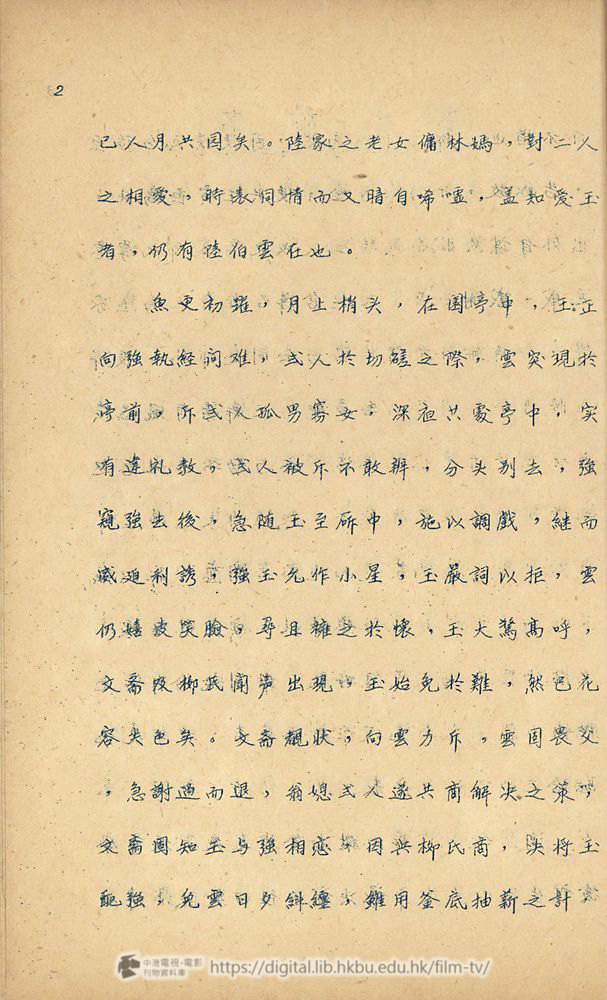 2
已人月共囙矣。陸家之老女傭林媽，對二人
之相愛，時表同情而又暗自唏噓，蓋知愛玉
者，仍有陸伯雲在也。
魚更初躍，月上梢头，在園亭中，玉正
向強執經问难，弍人於切磋之際，雲突現於
亭前，斥弍人孤男寡女，深夜共處亭中，实
有違礼教，弍人被斥不敢辨，分头别去，強
窺強去後，急随玉至厛中，施以調戲，継而
威廹利誘，強玉允作小星，玉嚴詞以拒，雲
仍嬉皮笑臉，尋且擁之於懷，玉大驚髙呼，
文斋及柳氏闻声出現，玉始免於難，然已花
容失色矣。文斋覩狀，向雲力斥，雲固畏父
，急謝過而退，翁媳弍人遂共商解决之策，
文斋固知玉与強相恋，因與柳氏商，决将玉
配強，免雲日夕糾纏，雖用釜底抽薪之計
中港電視·電影
刊物資料庫
https://digital.lib.hkbu.edu.hk/film-tv/